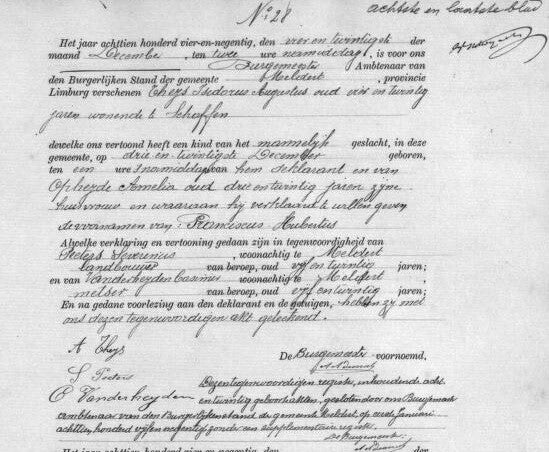 N° 28
achtste en laatste blad
Het jaar achttien honderd vier-en-negentig, den vier en twintigste der
maand December, ten twee ure namiddag, is voor ons
Burgemeester Ambtenaar van
den Burgerlijken Stand der gemeente Meldert, provincie
Limburg verschenen Theys Isidorus Augustus oud vier en twintig
jaren wonende te Schaffen
dewelke ons vertoond heeft een kind van het mannelijk geslacht, in deze
gemeente, op drie en twintigste December geboren,
ten een ure namiddag van hem deklarant en van
Opheyde Amelia oud drie en twintig jaren zijne
huisvrouw en waaraan hij verklaard te willen geven
de voornamen van: Franciscus Hubertus
Alwelke verklaring en vertooning gedaan zijn in tegenwoordigheid van
Peeters Severinus, woonachtig te Meldert
landbouwer van beroep, oud vijf en twintig jaren;
en van Vanderheyden Casimir woonachtig te Meldert,
metser van beroep, oud vijf en twintig jaren;
En na gedane voorlezing aan den deklarant en de getuigen, hebben zij met
ons dezen tegenwoordigen akt geteekend.
A Theys
De Burgemeester voornoemd,
S Peeters
C Vanderheyden
Dezen tegenwoordigen register, inhoudende acht
en twintig geboorteakten, gesloten door ons Burgemeester
ambtenaar van den Burgerlijken stand der gemeente Meldert op eersten Januari
achttien honderd vijf en negentig zonder een supplementaire register
De Burgemeester
Het jaar achttien honderd vier en negentig, den der